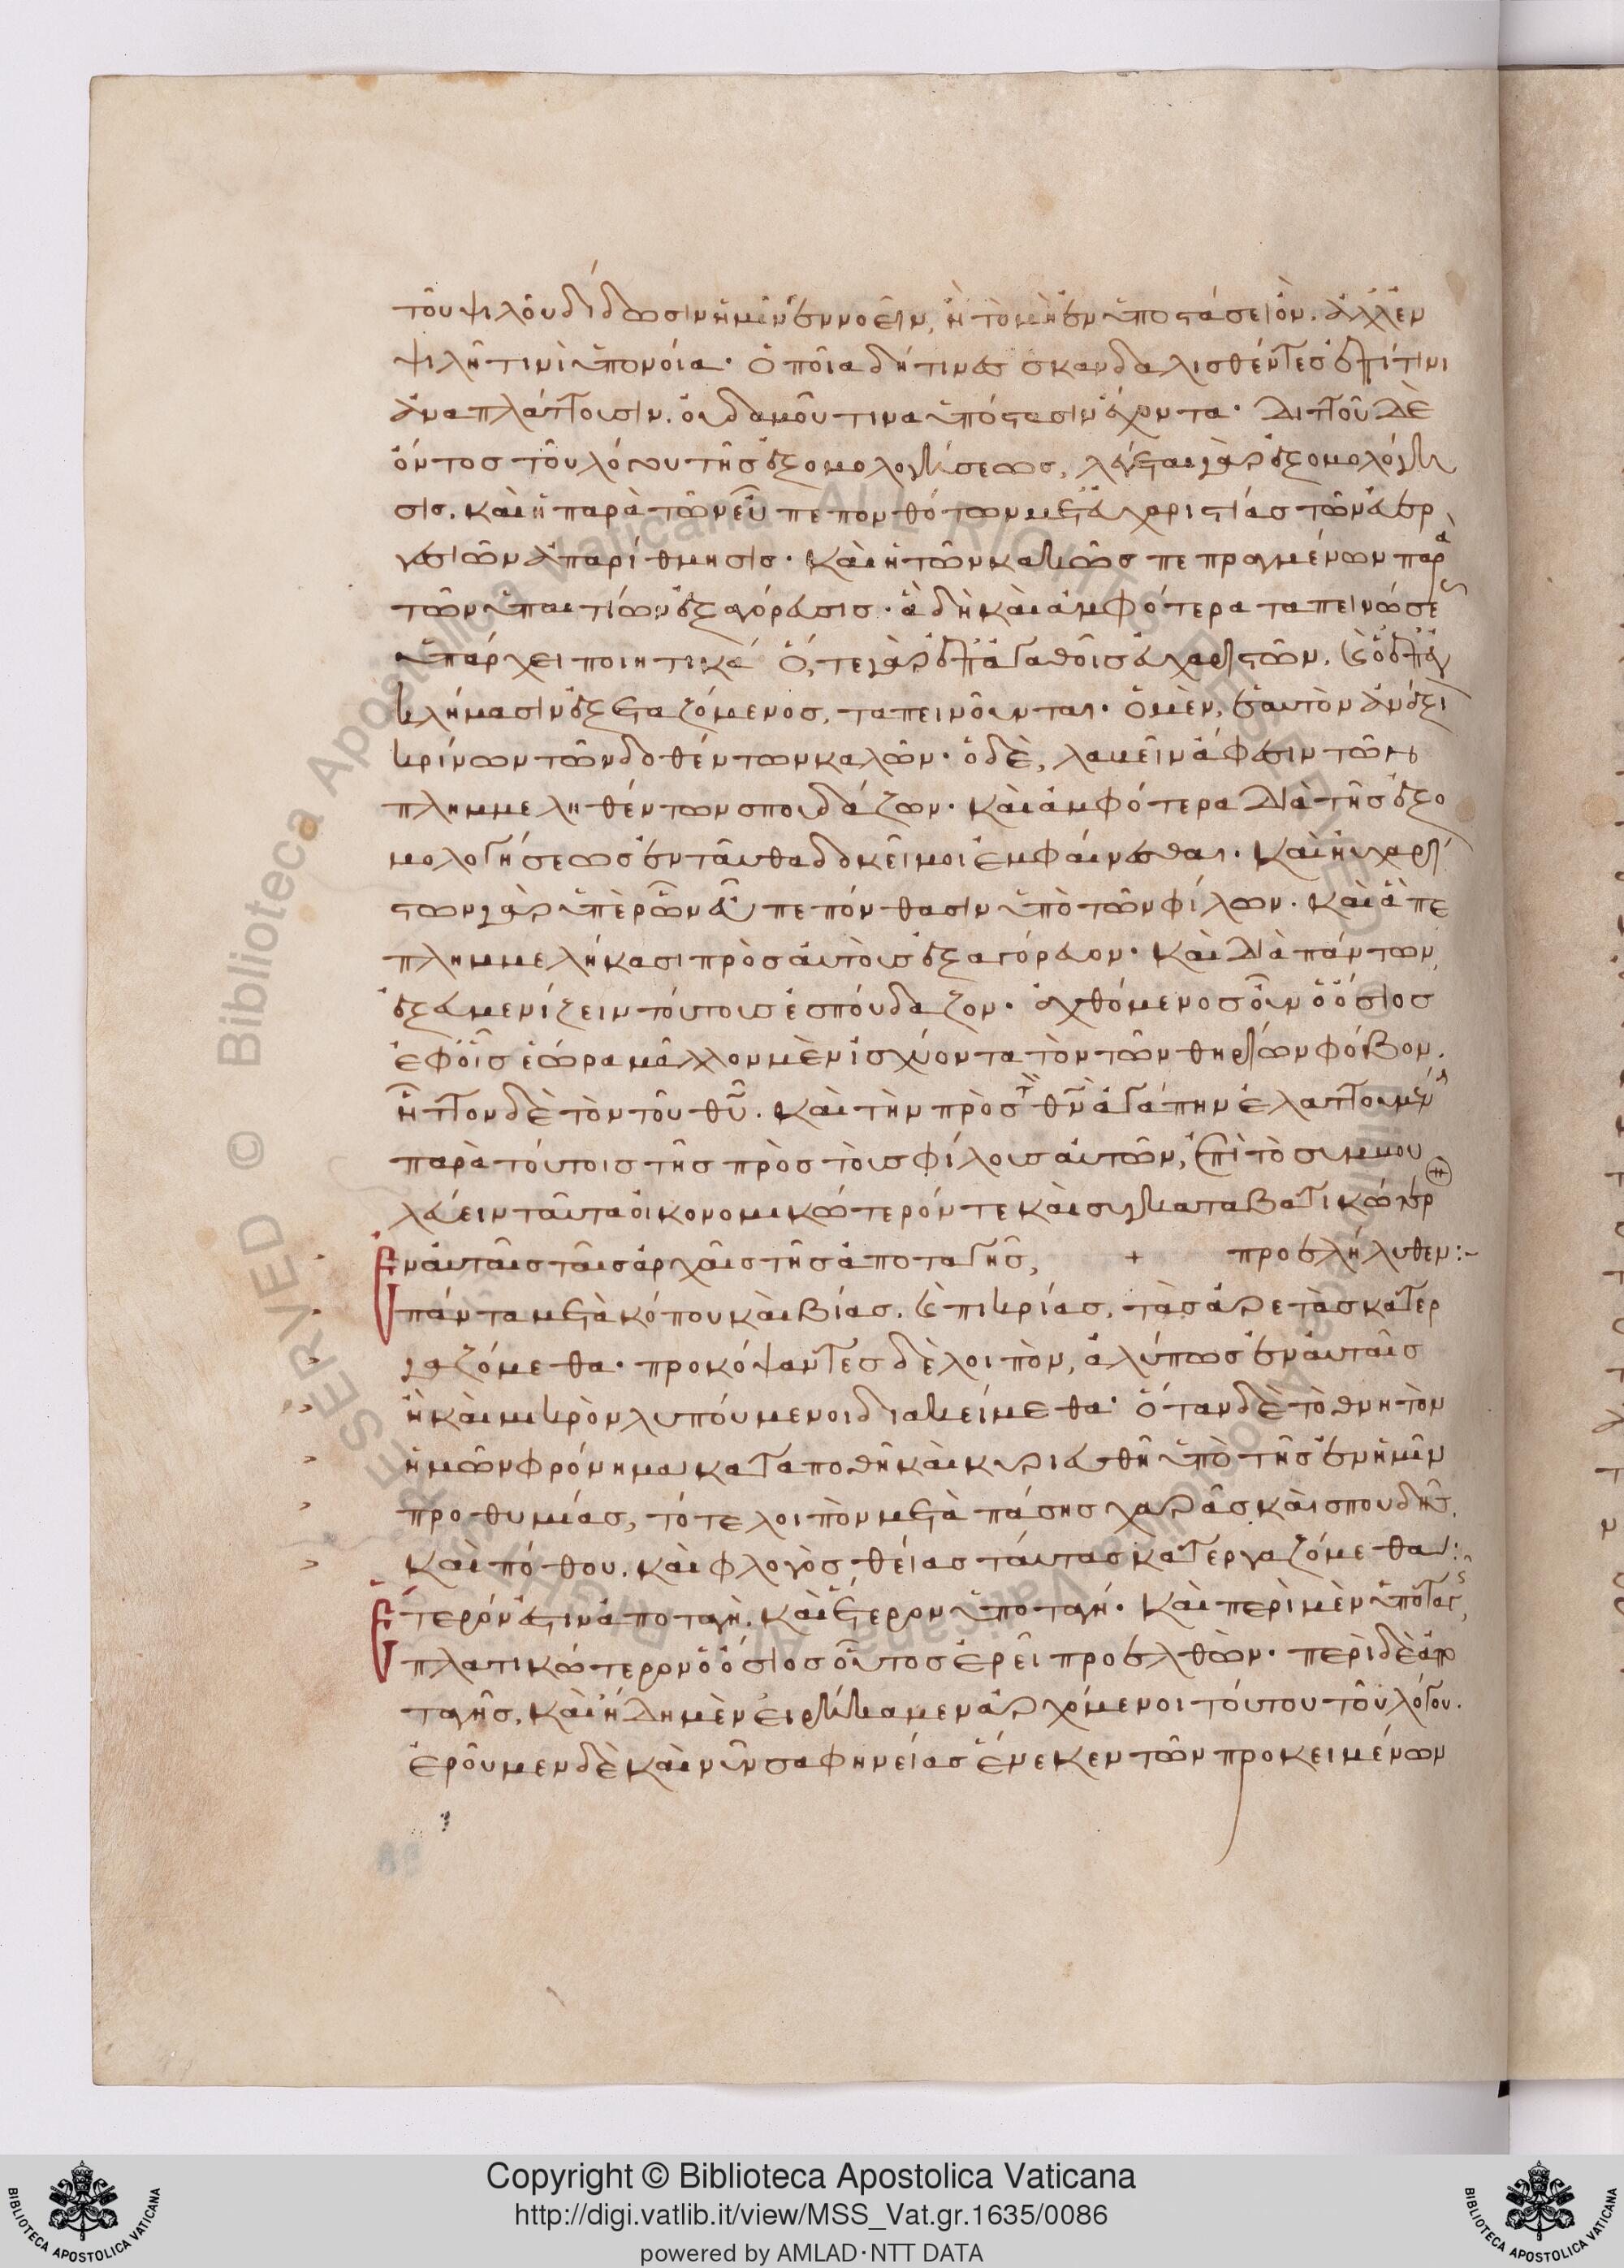 τοῦ ψιλοῦ δίδωσιν ἡμῖν ἐννοεῖν, ἢ τὸ μὴ ἐν ὑποστάσει ὂν. ἀλλ' ἐν
ψιλῆ τινὶ ὑπονοία· ὁποῖα δή τινες σκανδαλισθέντες ἐπί τινι
ἀναπλάττουσιν. οὐδαμοῦ τινα ὑπόστασιν ἔχοντα· διττοῦ δὲ
ὄντος τοῦ λόγου τῆς ἐξομολογήσεως, λέγεται γὰρ ἐξομολόγη
σις. καὶ ἡ παρὰ τῶν εὖ πεπονθότων μετ' εὐχαριστίας τῶν εὐερ
γεσιῶν ἀπαρίθμησις· καὶ ἡ τῶν κακῶς πεπραγμένων παρὰ
τῶν ὑπαιτίων ἐξαγόρευσις· ἃ δὴ καὶ ἀμφότερα ταπεινώσε
ὑπάρχει ποιητικά ὅ, τε γὰρ ἐπ' ἀγαθοῖς εὐχαριστῶν. καὶ ὁ ἐπ' ἐγ
κλήμασιν ἐξεταζόμενος, ταπεινοῦνται· ὁ μὲν, ἑαυτὸν ἀνάξι
κρίνων τῶν δοθέντων καλῶν· ὁ δὲ, λαβεῖν ἄφεσιν τῶν
πλημμεληθέντων σπουδάζων· καὶ ἀμφότερα διὰ τῆς ἐξο
μολογήσεως ἐνταῦθα δοκεῖ μοι ἐμφαίνεσθαι· καὶ ηὐχαρί
στων γὰρ ὑπὲρ ὧν εὖ πεπόνθασιν ὑπὸ τῶν φίλων. καὶ ἃ πε
πλημμελήκασι πρὸς αὐτοὺς ἐξαγόρευον· καὶ διὰ πάντων
ἐξευμενίζειν τούτους ἐσπούδαζον· ἀχθόμενος οὖν ὁ ὅσιος
ἐφ' οἷς ἑώρα μᾶλλον μὲν ἰσχύοντα τὸν τῶν θηρίων φόβον.
ἧττον δὲ τὸν τοῦ θυ. καὶ τὴν πρὸς τὸν θν ἀγάπην ἐλαττουμένην
παρὰ τούτοις τῆς πρὸς τοὺς φίλους αὐτῶν, ἐπὶ τὸ συμβου
λεύειν ταῦτα οἰκονομικώτερόν τε καὶ συγκαταβατικώτερ
Ἐν αὐταῖς ταῖς ἀρχαῖς τῆς ἀποταγῆς, + προελήλυθεν:-
πάντα μετὰ κόπου καὶ βίας. καὶ πικρίας, τὰς ἀρετὰς κατερ
γαζόμεθα· προκόψαντες δὲ λοιπὸν, ἀλύπως ἐν αὐταῖς
ἢ καὶ μικρὸν λυπούμενοι διακείμεθα· ὅταν δὲ τὸ θνητὸν
ἡμῶν φρόνημα καταποθῆ καὶ κυριευθῆ ὑπὸ τῆς ἐν ἡμῖν
προθυμίας, τότε λοιπὸν μετὰ πάσης χαρᾶς καὶ σπουδῆς.
καὶ πόθου. καὶ φλογὸς θείας ταύτας κατεργαζόμεθα:
Ἕτερόν ἐστιν ἀποταγὴ. καὶ ἕτερον ὑποταγή· καὶ περὶ μὲν ὑποταγῆς,
πλατικώτερον ὁ ὅσιος οὗτος ἐρεῖ προελθών· περὶ δὲ ἀπο
ταγῆς, καὶ ἤδη μὲν εἰρήκαμεν ἀρχόμενοι τούτου τοῦ λόγου.
ἐροῦμεν δὲ καὶ νῦν σαφηνείας ἕνεκεν τῶν προκειμένων
Copyright © Biblioteca Apostolica Vaticana
http://digi.vatlib.it/view/MSS_Vat.gr.1635/0086
powered by AMLAD·NTT DATA